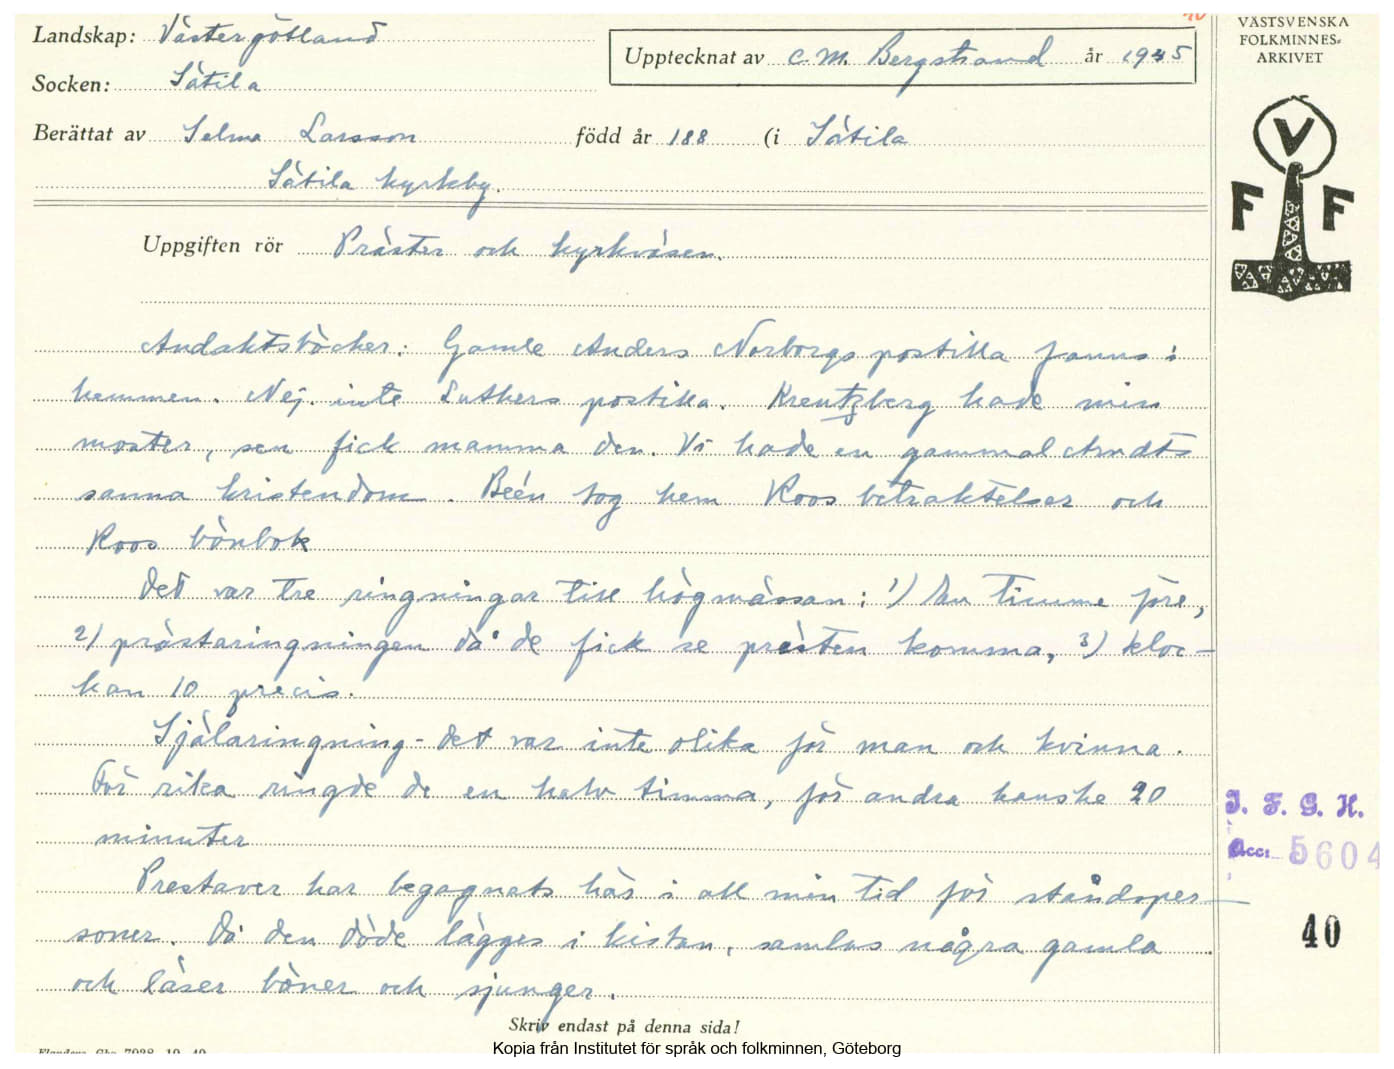 Landskap: Västergötland
Upptecknat av C. M. Bergstrand år 1945
Socken: Sätila
Berättat av Selma Larsson född år 188 (i Sätila
Sätila kyrkby.
Uppgiften rör Präster och kyrkväsen.
Andaktsböcker: Gamle Anders Norborgs postilla fanns i
hemmen. Nej. inte Luthers postilla. Kreutzberg hade min
moster, sen fick mamma den. Vi hade en gammal Arndts
sanna kristendom. Been tog hem Roos betraktelser och
Roos bönbok
Det var tre ringningar till högmässan: 1) En timme före,
2) prästaringningen då de fick se prästen komma, 3) kloc-
kan 10 precis.
Själaringning - det var inte olika för man och kvinna.
För rika ringde de en halv timma, för andra kanske 20
minuter
Prestaver har begagnats här i all min tid för ståndsper-
soner. Då den döde lägges i kistan, samlas några gamla
och läser böner och sjunger.
Skriv endast på denna sida!
VÄSTSVENSKA
FOLKMINNES-
ARKIVET
V
F F
I. F. G. H.
Acc: 5604
40
Kopia från Institutet för språk och folkminnen, Göteborg